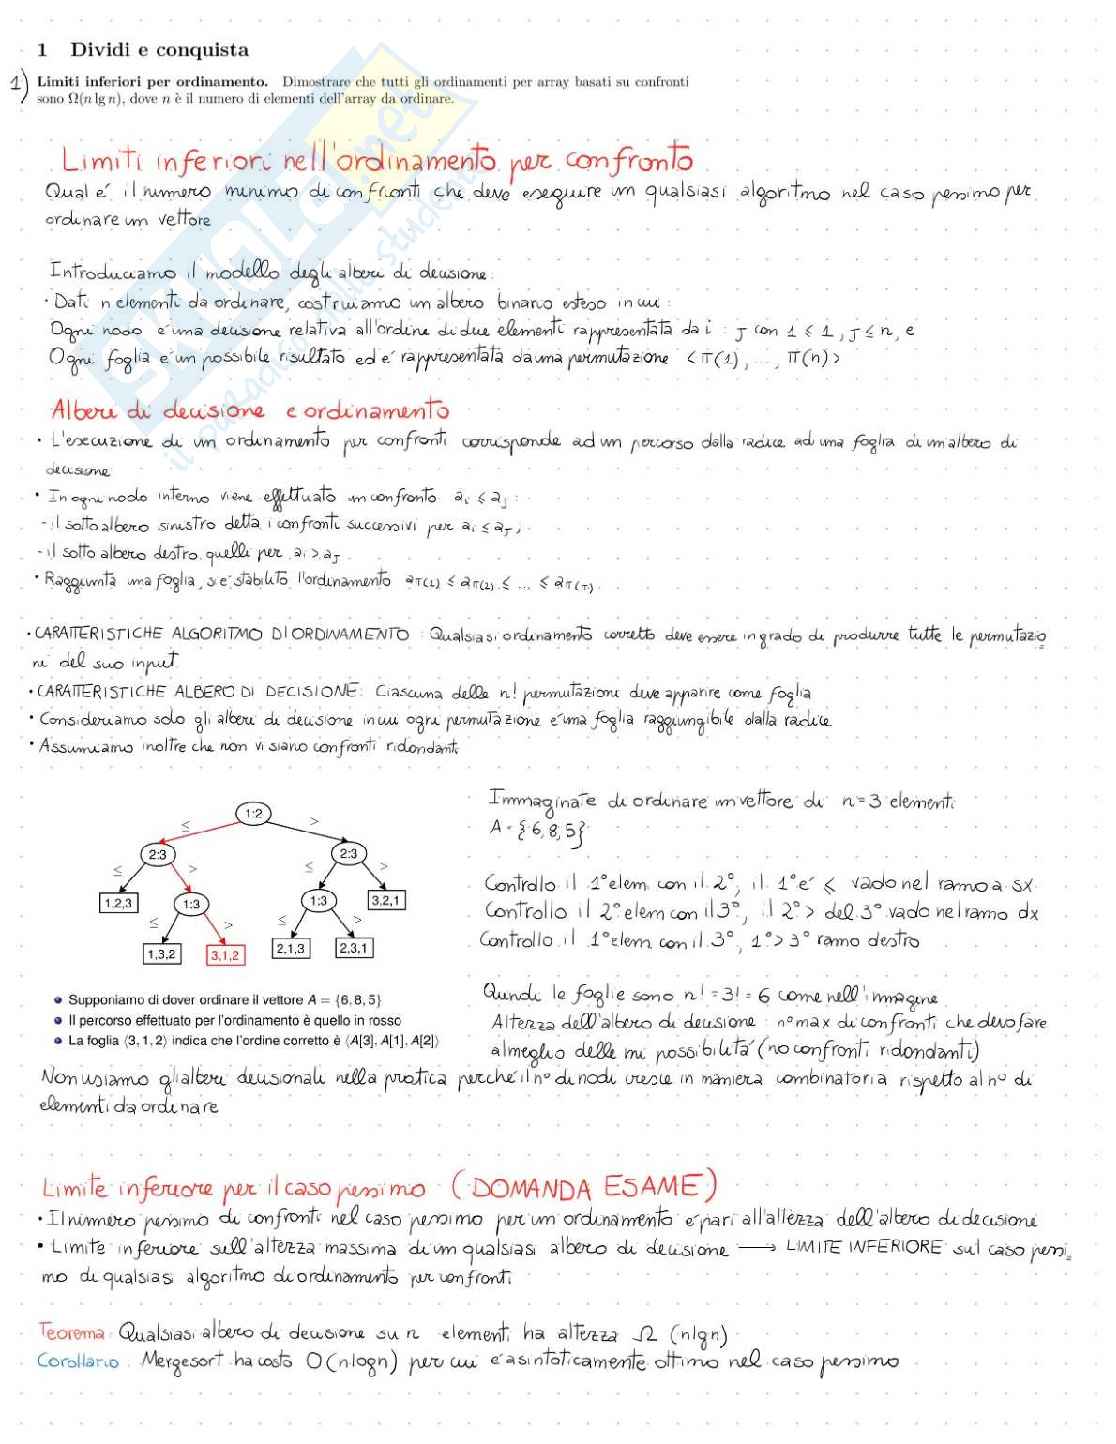 1 Dividi e conquista
1) Limiti inferiori per ordinamento. Dimostrare che tutti gli ordinamenti per array basati su confronti
sono Ω(n lg n), dove n è il numero di elementi dell'array da ordinare.
Limiti inferiori nell'ordinamento per confronto
Qual é il numero minimo di confronti che deve eseguire un qualsiasi algoritmo nel caso pessimo per
ordinare un vettore
Introduciamo il modello degli alberi di decisione:
· Dati n elementi da ordinare, costruiamo un albero binario esteso in cui:
Ogni nodo é una decisione relativa all'ordine di due elementi rappresentata da i : J con 1 ≤ 1, J ≤ n, e
Ogni foglia é un possibile risultato ed é rappresentata da una permutazione <π(1), ..., π(n)>
Alberi di decisione e ordinamento
· L'esecuzione di un ordinamento per confronti corrisponde ad un percorso dalla radice ad una foglia di un albero di
decisione
· In ogni nodo interno viene effettuato un confronto ai ≤ aJ:
- il sottoalbero sinistro detta i confronti successivi per ai ≤ aJ;
- il sotto albero destro quelli per ai > aJ
· Raggiunta una foglia, si é stabilito l'ordinamento aπ(1) ≤ aπ(2) ≤ ... ≤ aπ(π)
· CARATTERISTICHE ALGORITMO DI ORDINAMENTO: Qualsiasi ordinamento corretto deve essere in grado di produrre tutte le permutazio
ni del suo input
· CARATTERISTICHE ALBERO DI DECISIONE: Ciascuna delle n! permutazioni deve apparire come foglia
· Consideriamo solo gli alberi di decisione in cui ogni permutazione é una foglia raggiungibile dalla radice
· Assumiamo inoltre che non vi siano confronti ridondanti
1:2
≤ >
2:3 2:3
≤ > ≤ >
1,2,3 1:3 1:3 3,2,1
≤ > ≤ >
1,3,2 3,1,2 2,1,3 2,3,1
• Supponiamo di dover ordinare il vettore A = {6, 8, 5}
• Il percorso effettuato per l'ordinamento è quello in rosso
• La foglia ⟨3, 1, 2⟩ indica che l'ordine corretto è ⟨A[3], A[1], A[2]⟩
Immaginate di ordinare un vettore di n=3 elementi
A = {6, 8, 5}
Controllo il 1° elem con il 2°, il 1° é < vado nel ramo a sx
Controllo il 2° elem con il 3°, il 2° > del 3° vado nel ramo dx
Controllo il 1° elem con il 3°, 1° > 3° ramo destro
Quindi le foglie sono n! = 3! = 6 come nell'immagine
Altezza dell'albero di decisione: n° max di confronti che devo fare
al meglio delle mi possibilitá (no confronti ridondanti)
Non usiamo gli alberi decisionali nella pratica perché il n° di nodi cresce in maniera combinatoria rispetto al n° di
elementi da ordinare
Limite inferiore per il caso pessimo (DOMANDA ESAME)
· Il numero pessimo di confronti nel caso pessimo per un ordinamento é pari all'altezza dell'albero di decisione
· Limite inferiore sull'altezza massima di un qualsiasi albero di decisione → LIMITE INFERIORE sul caso pessi
mo di qualsiasi algoritmo di ordinamento per confronti
Teorema: Qualsiasi albero di decisione su n elementi ha altezza Ω (nlgn)
Corollario: Mergesort ha costo O(nlogn) per cui é asintoticamente ottimo nel caso pessimo